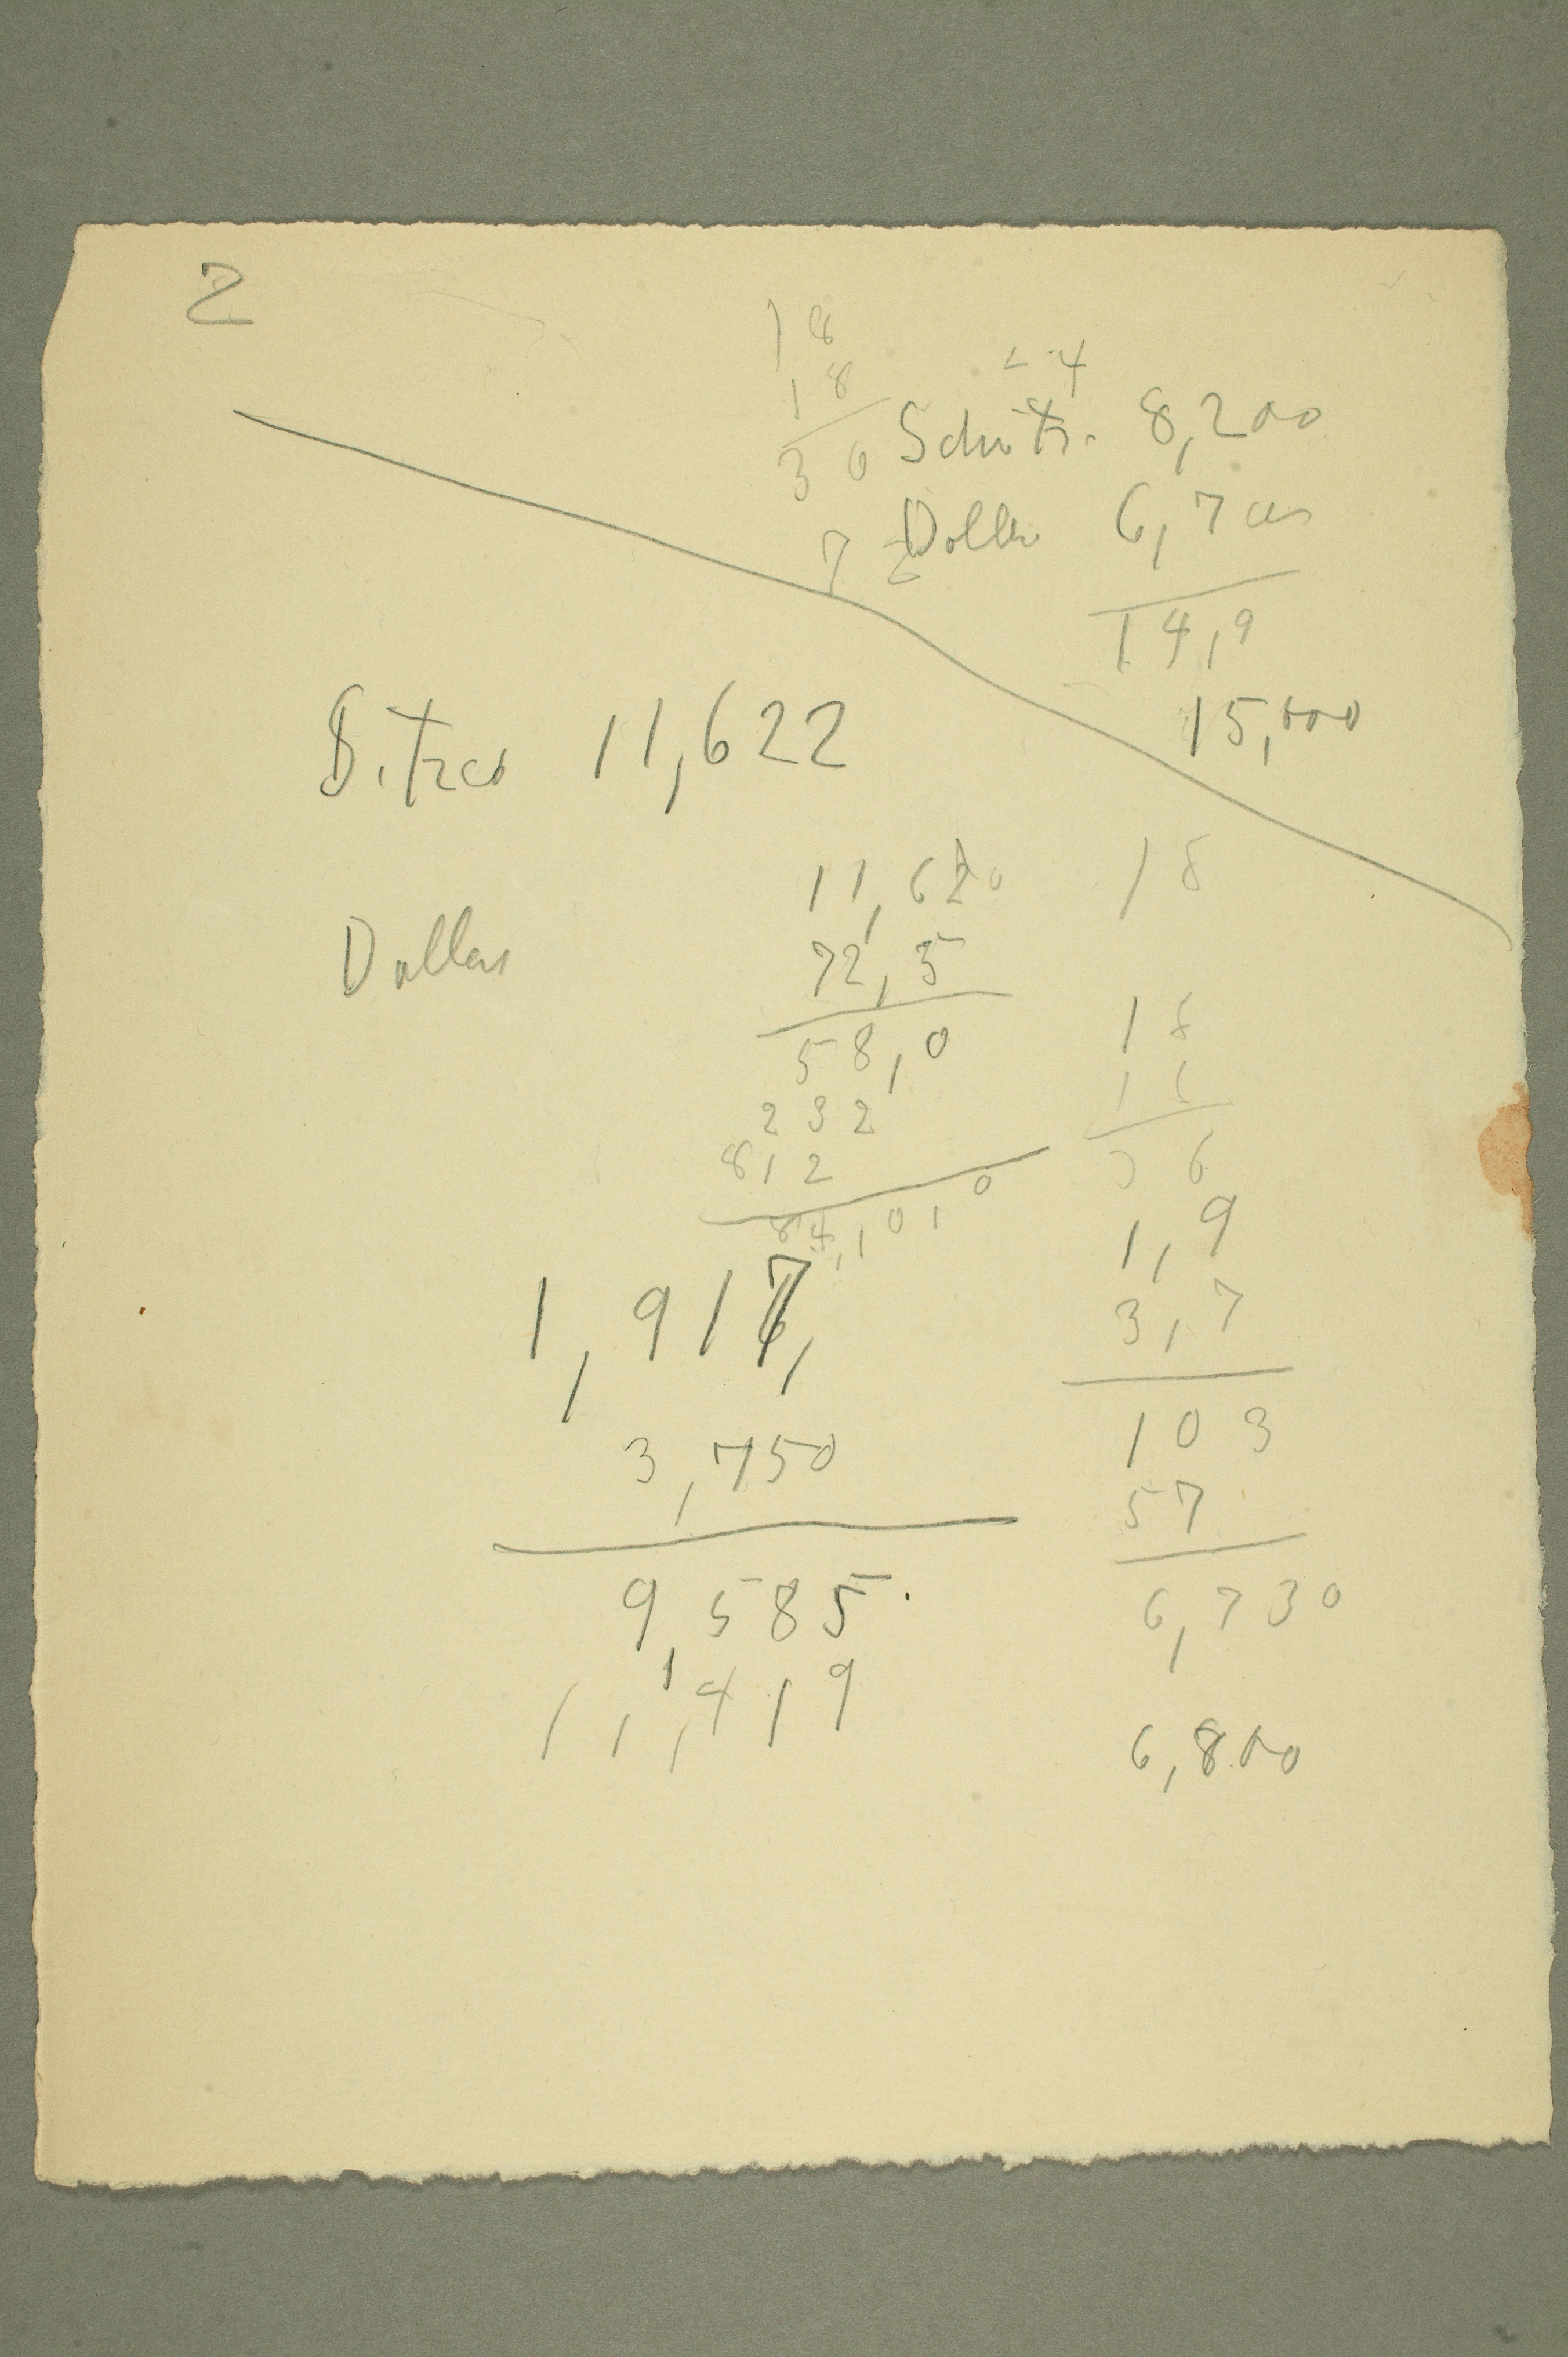 2
18
18
36
24
Schitz. 8,200
72
Dollar 6,700
14,9
15,000
11,622
Dollars
11,620
72,5
58,0
232
812
84,1010
18
18
18
36
1,917,
3,750
9,585.
11,419
1,9
3,7
103
57
6,730
6,800